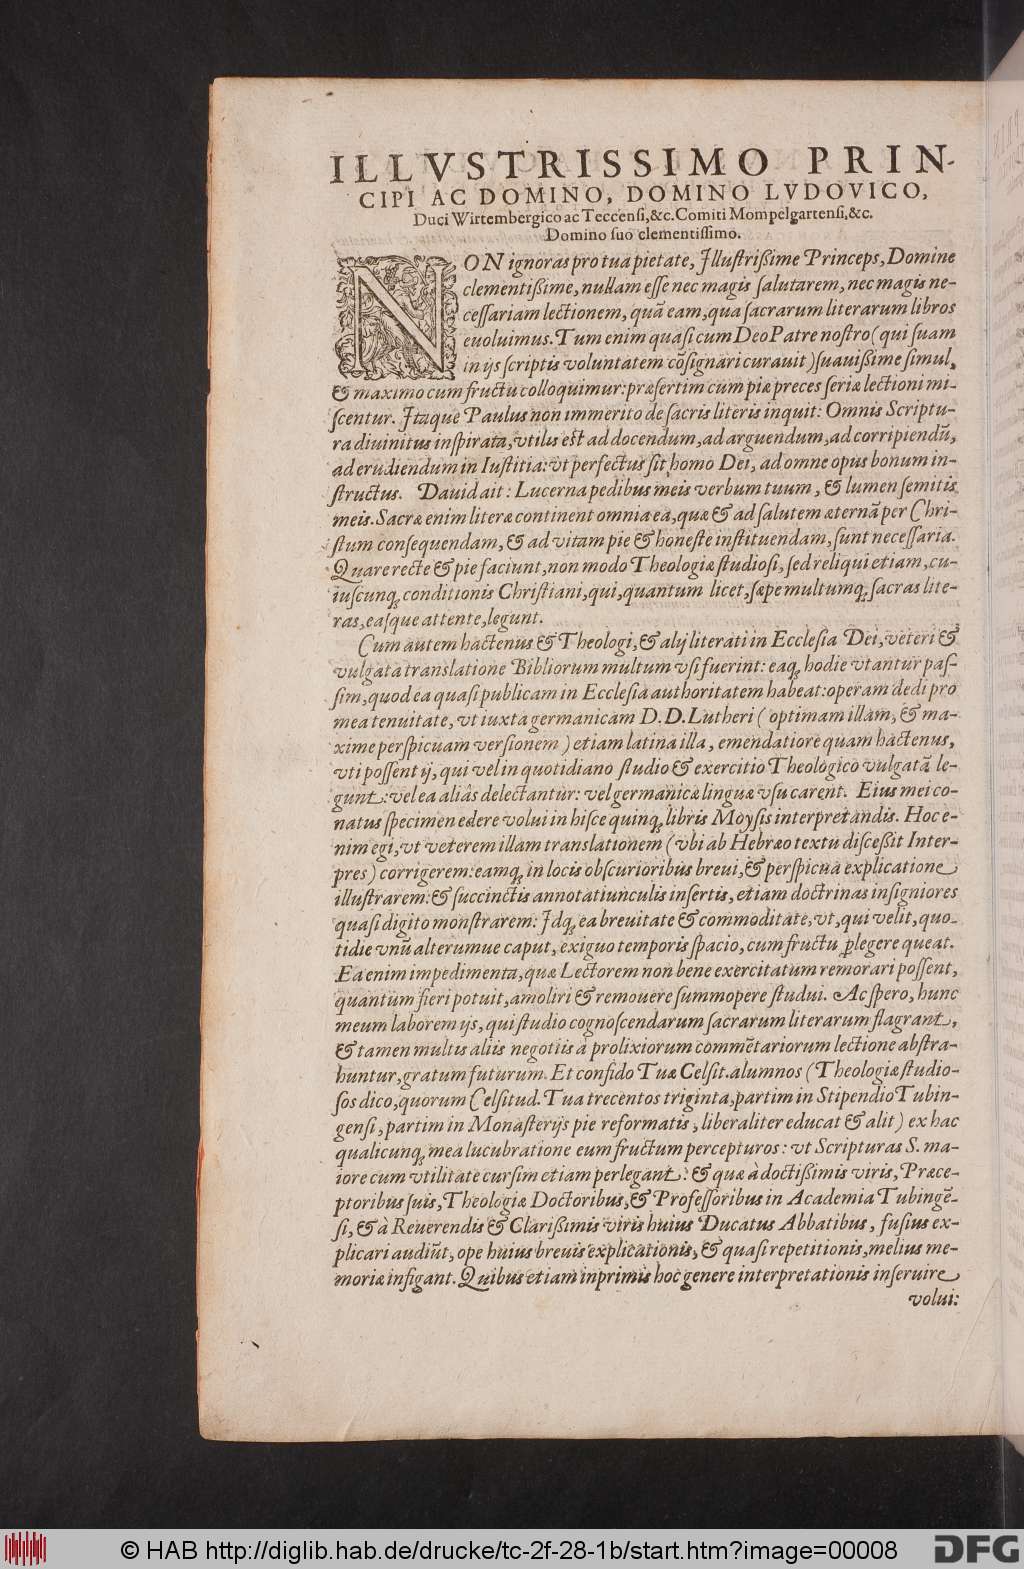 ILLVSTRISSIMO PRIN-
CIPI AC DOMINO, DOMINO LVDOVICO,
Duci Wirtembergico ac Teccensi, &c. Comiti Mompelgartensi, &c.
Domino suo clementissimo.
NON ignoras pro tua pietate, Illustrißime Princeps, Domine
clementißime, nullam esse nec magis salutarem, nec magis ne-
cessariam lectionem, quã eam, qua sacrarum literarum libros
euoluimus. Tum enim quasi cum Deo Patre nostro (qui suam
in ijs scriptis voluntatem cõsignari curauit) suauißime simul,
& maximo cum fructu colloquimur: præsertim cum piæ preces seriæ lectioni mi-
scentur. Itaque Paulus non immerito de sacris literis inquit: Omnis Scriptu-
ra diuinitus inspirata, vtilis est ad docendum, ad arguendum, ad corripiendũ,
ad erudiendum in Iustitia: vt perfectus sit homo Dei, ad omne opus bonum in-
structus. Dauid ait: Lucerna pedibus meis verbum tuum, & lumen semitis
meis. Sacræ enim literæ continent omnia ea, quæ & ad salutem æternã per Chri-
stum consequendam, & ad vitam pie & honeste instituendam, sunt necessaria.
Quare recte & pie faciunt, non modo Theologiæ studiosi, sed reliqui etiam, cu-
iuscunq; conditionis Christiani, qui, quantum licet, sæpe multumq; sacras lite-
ras, easque attente, legunt.
Cum autem hactenus & Theologi, & alij literati in Ecclesia Dei, veteri &
vulgata translatione Bibliorum multum vsi fuerint: eaq; hodie vtantur pas-
sim, quod ea quasi publicam in Ecclesia authoritatem habeat: operam dedi pro
mea tenuitate, vt iuxta germanicam D. D. Lutheri (optimam illam, & ma-
xime perspicuam versionem) etiam latina illa, emendatiore quam hactenus,
vti possent ij, qui vel in quotidiano studio & exercitio Theologico vulgatã le-
gunt: vel ea aliâs delectantur: vel germanicæ linguæ vsu carent. Eius mei co-
natus specimen edere volui in hisce quinq; libris Moysis interpretandis. Hoc e-
nim egi, vt veterem illam translationem (vbi ab Hebræo textu disceßit Inter-
pres) corrigerem: eamq; in locis obscurioribus breui, & perspicua explicatione
illustrarem: & succinctis annotatiunculis insertis, etiam doctrinas insigniores
quasi digito monstrarem: Idq; ea breuitate & commoditate, vt, qui velit, quo-
tidie vnũ alterumue caput, exiguo temporis spacio, cum fructu ꝑlegere queat.
Ea enim impedimenta, quæ Lectorem non bene exercitatum remorari possent,
quantum fieri potuit, amoliri & remouere summopere studui. Ac spero, hunc
meum laborem ijs, qui studio cognoscendarum sacrarum literarum flagrant,
& tamen multis aliis negotiis à prolixiorum commẽtariorum lectione abstra-
huntur, gratum futurum. Et confido Tuæ Celsit. alumnos (Theologiæ studio-
sos dico, quorum Celsitud. Tua trecentos triginta, partim in Stipendio Tubin-
gensi, partim in Monasterijs pie reformatis, liberaliter educat & alit) ex hac
qualicunq; mea lucubratione eum fructum percepturos: vt Scripturas S. ma-
iore cum vtilitate cursim etiam perlegant: & quæ à doctißimis viris, Præce-
ptoribus suis, Theologiæ Doctoribus, & Professoribus in Academia Tubingẽ-
si, & à Reuerendis & Clarißimis viris huius Ducatus Abbatibus, fusius ex-
plicari audiũt, ope huius breuis explicationis, & quasi repetitionis, melius me-
moriæ infigant. Quibus etiam inprimis hoc genere interpretationis inseruire
volui:
© HAB http://diglib.hab.de/drucke/tc-2f-28-1b/start.htm?image=00008
DFG